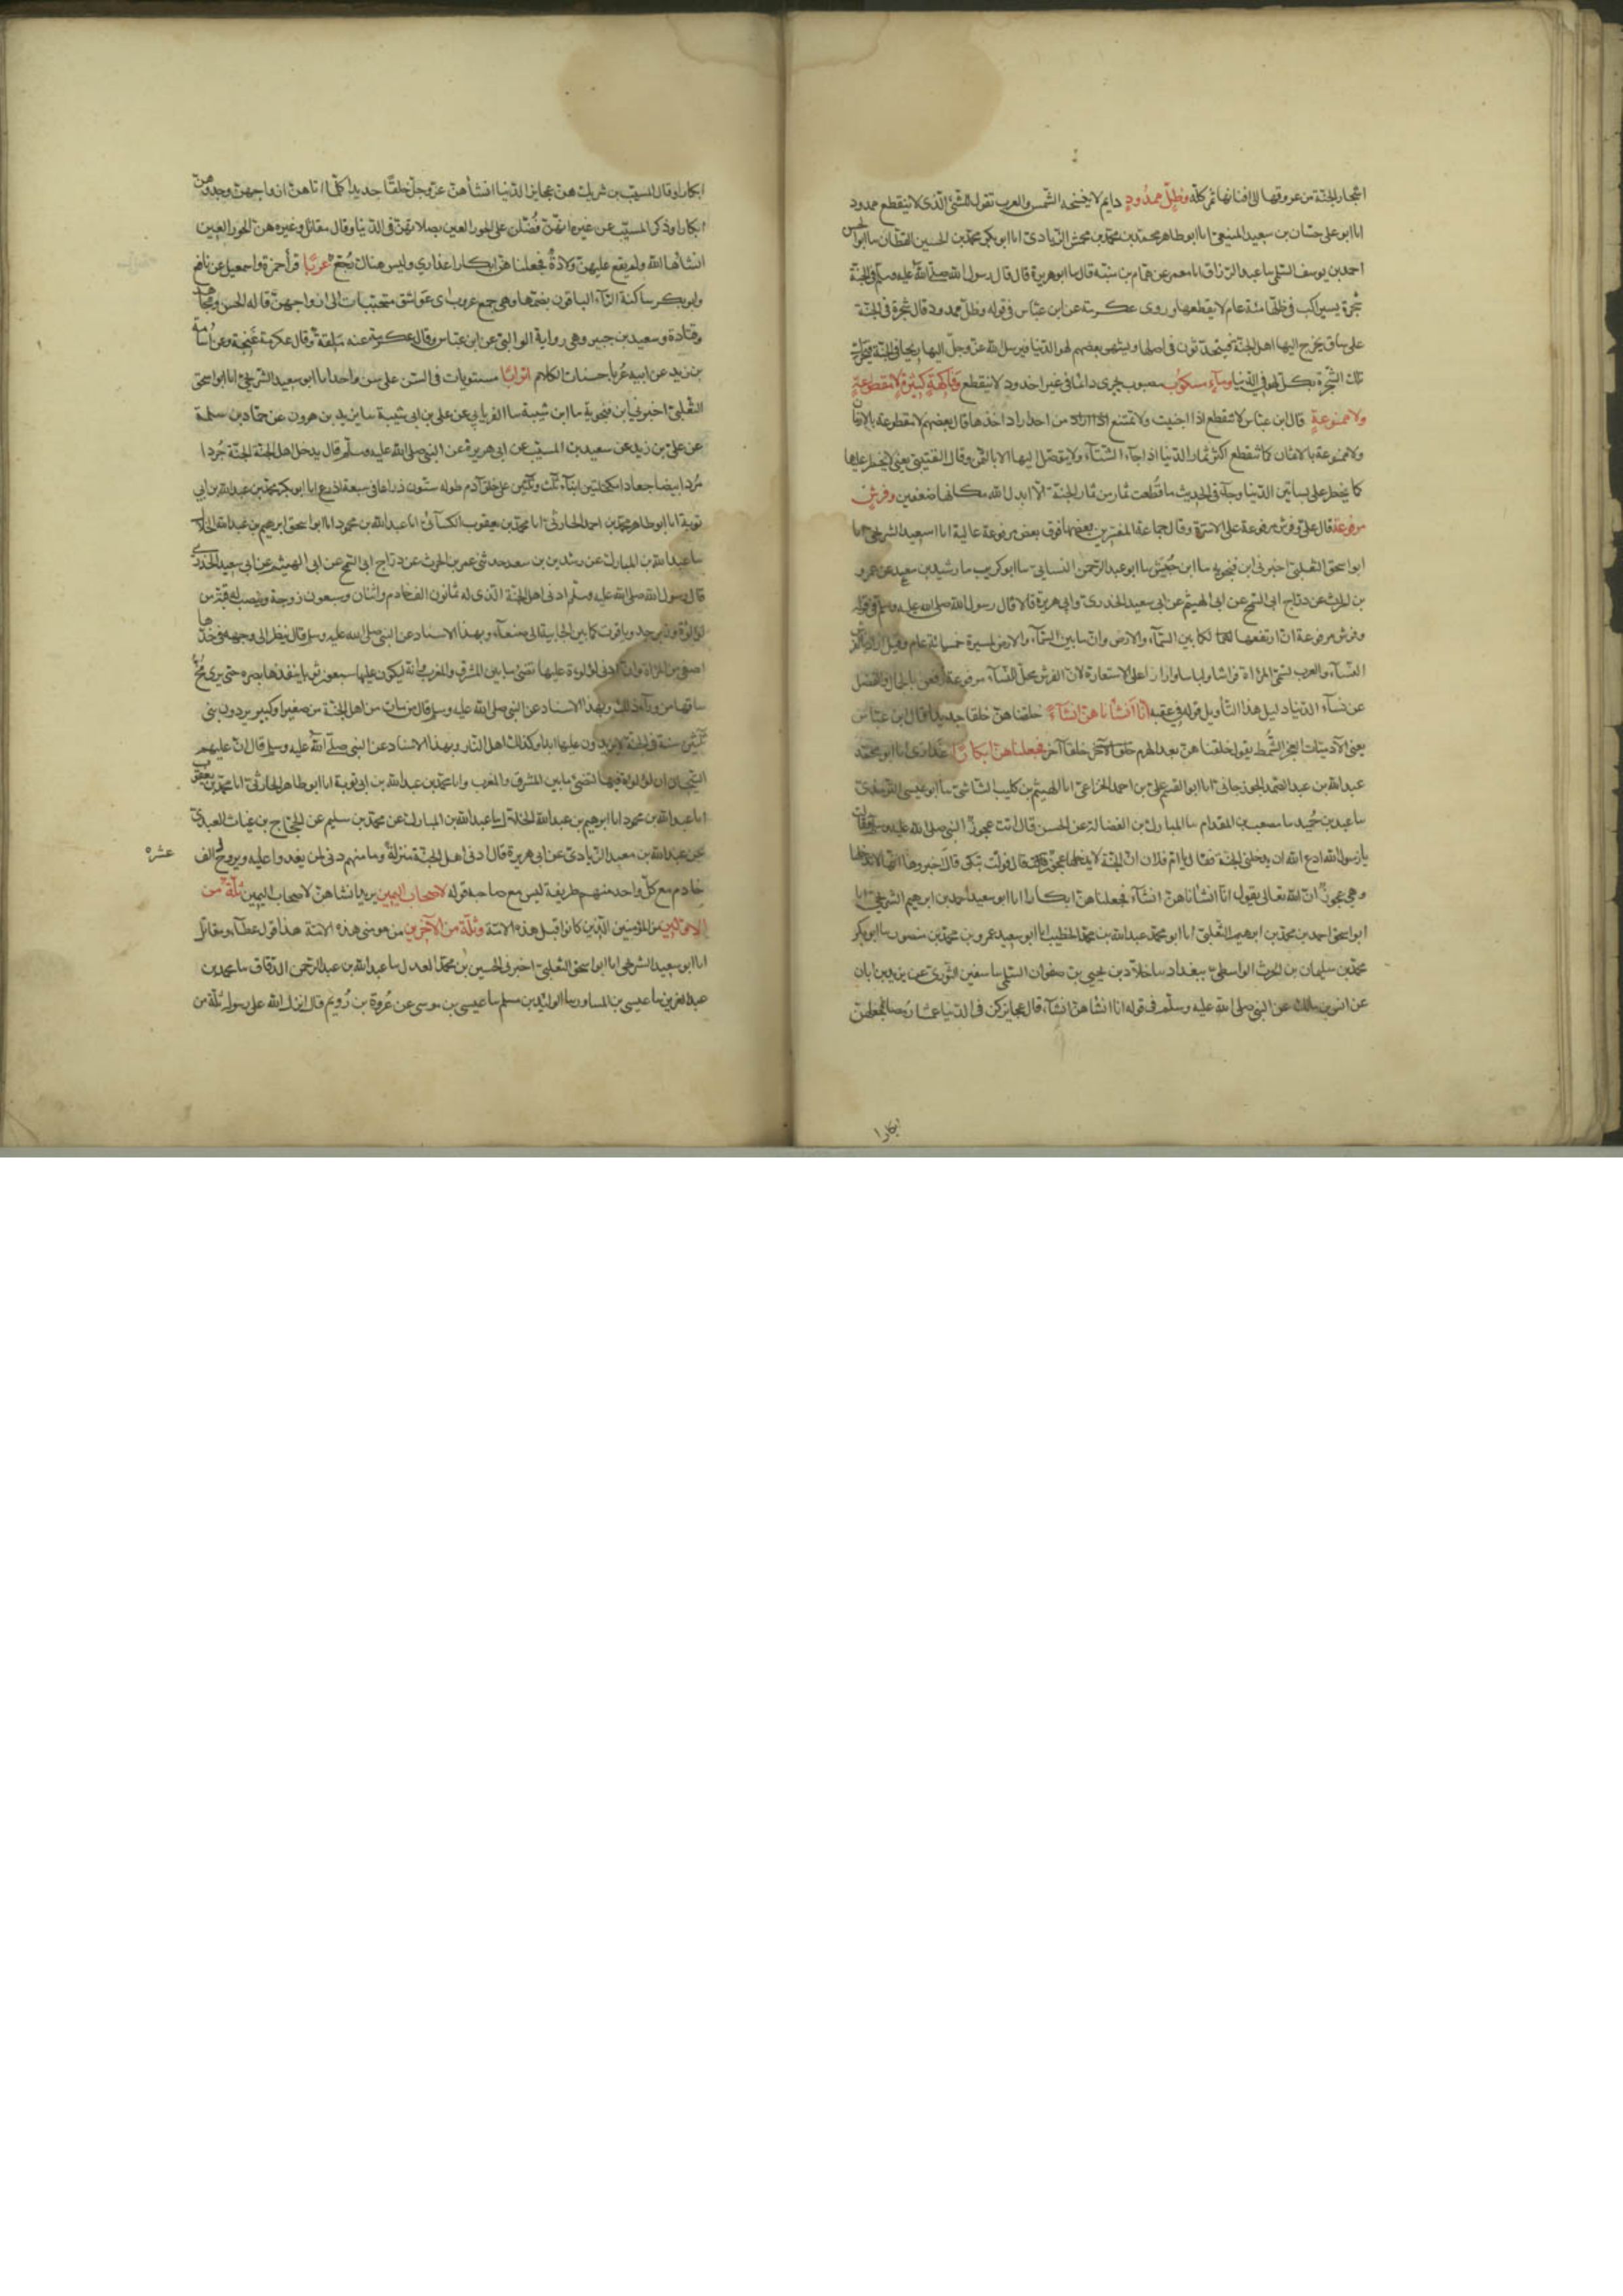 اشجار الجنة من عروقها الى افنانها ثمر كله وظل ممدود دايم لا ينسخه الشمس والعرب تقول للشئ الذى لا ينقطع ممدود
انا ابو على حسان بن سعيد المنيعى انا ابو طاهر محمد بن محمد بن محمش الزيادى انا ابو بكر محمد بن الحسين القطان سا ابو الحسن
احمد بن يوسف السلمى سا عبد الرزاق انا معمر عن همام بن منبه قال سا ابو هريرة قال قال رسول الله صلى الله عليه وسلم فى الجنة
شجرة يسير الراكب فى ظلها مئة عام لا يقطعها وروى عكرمة عن ابن عباس فى قوله وظل ممدود قال شجرة فى الجنة
على ساق يخرج اليها اهل الجنة فيتحدثون فى اصلها ويشتهى بعضهم لهو الدنيا فيرسل الله عز وجل اليها ريحا فى الجنة فتحرك
تلك الشجرة بكل لهو فى الدنيا وماء مسكوب مصبوب يجرى دائما فى غير اخدود لا ينقطع وفاكهة كثيرة لا مقطوعة
ولا ممنوعة قال ابن عباس لا تنقطع اذا اجنيت ولا تمتنع من احد اراد اخذها قال بعضهم لا مقطوعة بالازمان
ولا ممنوعة بالاثمان كما تنقطع اكثر ثمار الدنيا اذا جاء الشتاء ولا يتوصل اليها الا بالثمن وقال القتيبى يعنى لا يحظر عليها
كما يحظر على بساتين الدنيا وجاء فى الحديث ما قطعت ثمار من ثمار الجنة الا ابدل الله مكانها ضعفين وفرش
مرفوعة قال على وفرش مرفوعة على الاسرة وقال جماعة المفسرين بعضها فوق بعض مرفوعة عالية انا ابو سعيد الشريحى انا
ابو اسحق الثعلبى اخبرنى ابن فنجويه سا ابن حبيش سا ابو عبد الرحمن النسايى سا ابو كريب سا رشيد بن سعيد عن عمرو
بن الحرث عن دراج ابى السمح عن ابى الهيثم عن ابى سعيد الخدرى وابى هريرة قالا قال رسول الله صلى الله عليه وسلم فى قوله
وفرش مرفوعة ان ارتفعها لكما بين السماء والارض وان ما بين السماء والارض لمسيرة خمسمائة عام وقيل اراد بالفرش
النساء والعرب تسمى المرأة فراشا ولباسا وازارا على الاستعارة لان الفرش محل النساء مرفوعة رفعن بالجمال والفضل
عن نساء الدنيا دليل هذا التأويل قوله فى عقبه انا انشأناهن انشاء خلقناهن خلقا جديدا قال ابن عباس
يعنى الآدميات العجز الشمط يقول خلقناهن بعد الهرم خلقا آخر فجعلناهن ابكارا عذارى انا ابو محمد
عبد الله بن عبد الصمد الجوزجانى انا ابو القسم على بن احمد الخزاعى انا الهيثم بن كليب الشاشى سا ابو عيسى الترمذى
سا عبد بن حميد سا مصعب بن المقدام سا المبارك بن الفضالة عن الحسن قال اتت عجوز النبى صلى الله عليه وسلم فقالت
يا رسول الله ادع الله ان يدخلنى الجنة فقال يا ام فلان ان الجنة لا يدخلها عجوز قال فولت تبكى قال اخبروها انها لا تدخلها
وهى عجوز ان الله تعالى يقول انا انشأناهن انشاء فجعلناهن ابكارا انا ابو سعيد احمد بن ابرهيم الشريحى انا
ابو اسحق احمد بن محمد بن ابرهيم الثعلبى انا ابو محمد عبد الله بن محمد الخطيب انا ابو سعيد عمرو بن محمد بن منصور سا ابو بكر
محمد بن سليمان بن الحرث الواسطى ببغداد سا خلاد بن يحيى بن صفوان السلمى سا سفين الثورى عن يزيد بن ابان
عن انس بن مالك عن النبى صلى الله عليه وسلم فى قوله انا انشأناهن انشاء قال عجايز كن فى الدنيا عمشا رمصا فجعلهن
ابكارا
ابكارا وقال المسيب بن شريك هن عجايز الدنيا انشأهن عز وجل خلقا جديدا كلما اتاهن ازواجهن وجدوهن
ابكارا وذكر المسيب عن غيره انهن فضلن على الحور العين بصلاتهن فى الدنيا وقال مقاتل وغيره هن الحور العين
انشأها الله ولم يقع عليهن ولادة فجعلناهن ابكارا عذارى وليس هناك وجع عربا قرأ حمزة واسمعيل عن نافع
وابو بكر ساكنة الراء الباقون بضمها وهى جمع عروب اى عواشق متحببات الى ازواجهن قاله الحسن ومجاهد
وقتادة وسعيد بن جبير وهى رواية الوالبى عن ابن عباس وقال عكرمة عنه ملقة وقال عكرمة غنجة وعن اسامة
بن زيد عن ابيه عربا حسنات الكلام اترابا مستويات فى السن على سن واحد انا ابو سعيد الشريحى انا ابو اسحق
الثعلبى اخبرنى ابن فنجويه سا ابن شيبة سا الفريابى عن على بن ابى شيبة سا يزيد بن هرون عن حماد بن سلمة
عن على بن زيد عن سعيد بن المسيب عن ابى هريرة عن النبى صلى الله عليه وسلم قال يدخل اهل الجنة الجنة جردا
مردا بيضا جعادا مكحلين ابناء ثلث وثلثين على خلق آدم طوله ستون ذراعا فى سبعة اذرع انا ابو بكر محمد بن عبد الله بن ابى
توبة انا ابو طاهر محمد بن احمد الحارثى انا محمد بن يعقوب الكسائى انا عبد الله بن محمود انا ابو اسحق ابرهيم بن عبد الله الخلال
سا عبد الله بن المبارك عن رشدين بن سعد حدثنى عمر بن الحرث عن دراج ابى السمح عن ابى الهيثم عن ابى سعيد الخدرى
قال رسول الله صلى الله عليه وسلم ادنى اهل الجنة الذى له ثمانون الف خادم واثنان وسبعون زوجة وينصب له قبة من
لؤلؤة وزبرجد وياقوت كما بين الجابية الى صنعاء وبهذا الاسناد عن النبى صلى الله عليه وسلم قال ينظر الى وجهه فى خدها
اصفى من المرآة وان ادنى لؤلؤة عليها تضئ ما بين المشرق والمغرب وانه ليكون عليها سبعون ثوبا ينفذها بصره حتى يرى مخ
ساقها من وراء ذلك وبهذا الاسناد عن النبى صلى الله عليه وسلم قال من مات من اهل الجنة من صغير او كبير يردون بنى
ثلثين سنة فى الجنة لا يزيدون عليها ابدا وكذلك اهل النار وبهذا الاسناد عن النبى صلى الله عليه وسلم قال ان عليهم
التيجان ان لؤلؤة فيها لتضئ ما بين المشرق والمغرب وانا محمد بن عبد الله بن ابى توبة انا ابو طاهر الحارثى انا محمد بن يعقوب
انا عبد الله بن محمود انا ابرهيم بن عبد الله الخلال سا عبد الله بن المبارك عن محمد بن سليم عن الحجاج بن عتاب العبدى
عن عبد الله بن معبد الزيادى عن ابى هريرة قال ادنى اهل الجنة منزلة وما منهم دنى لمن يغدوا عليه ويروح الف
عشره
خادم مع كل واحد منهم طريفة ليس مع صاحبه قوله لاصحاب اليمين يريد انشأناهن لاصحاب اليمين ثلة من
الاولين من المؤمنين الذين كانوا قبل هذه الامة وثلة من الآخرين من مومنى هذه الامة هذا قول عطاء ومقاتل
انا ابو سعيد الشريحى انا ابو اسحق الثعلبى اخبرنى الحسين بن محمد العدل سا عبد الله بن عبد الرحمن الدقاق سا محمد بن
عبد العزيز سا عيسى بن المساور سا الوليد بن مسلم سا عيسى بن موسى عن عروة بن رويم قال انزل الله على رسوله ثلة من